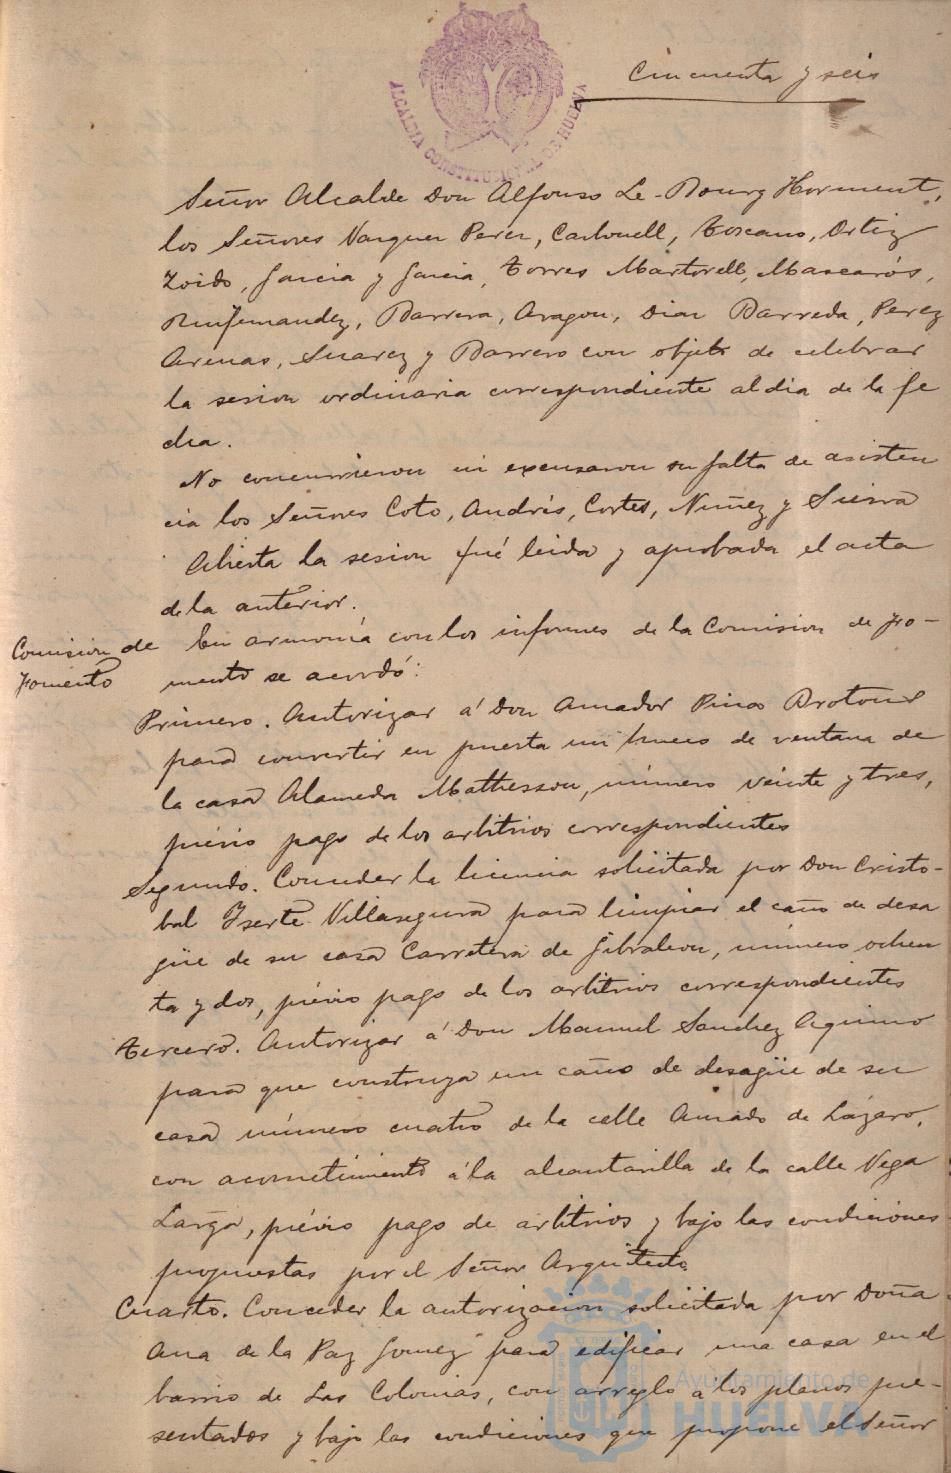 Cincuenta y seis
ALCALDIA CONSTITUCIONAL DE HUELVA
Señor Alcalde Don Alfonso Le-Bourg Horment,
los Señores Vazquez Perez, Carbonell, Toscano, Ortiz
Zoido, Garcia y Garcia, Torres Martorell, Mascarós,
Ruifernandez, Barrera, Aragon, Diaz Barreda, Perez
Arenas, Suarez y Barrero con objeto de celebrar
la sesion ordinaria correspondiente al dia de la fe
cha.
No concurrieron ni excusaron su falta de asisten
cia los Señores Coto, Andrés, Cortes, Nuñez y Sierra
Abierta la sesion fué leida y aprobada el acta
de la anterior.
Comision de
Fomento
En armonía con los informes de la Comision de Fo-
mento se acordó:
Primero. Autorizar á Don Amador Pinos Brotons
para convertir en puerta un hueco de ventana de
la casa Alameda Mathesson, número veinte y tres,
prévio pago de los arbitrios correspondientes
Segundo. Conceder la licencia solicitada por Don Cristo-
bal Yserte Villasegura para limpiar el caño de desa
güe de su casa Carretera de Gibraleon, número ochen
ta y dos, prévio pago de los arbitrios correspondientes
Tercero. Autorizar á Don Manuel Sanchez Aquino
para que construya un caño de desagüe de su
casa número cuatro de la calle Amado de Lázaro,
con acometimiento á la alcantarilla de la calle Vega
Larga, prévio pago de arbitrios y bajo las condiciones
propuestas por el Señor Arquitecto
Cuarto. Conceder la autorizacion solicitada por Doña
Ana de la Paz Gomez para edificar una casa en el
barrio de Las Colonias, con arreglo á los planos pre-
sentados y bajo las condiciones que propone el Señor
Ayuntamiento de
HUELVA